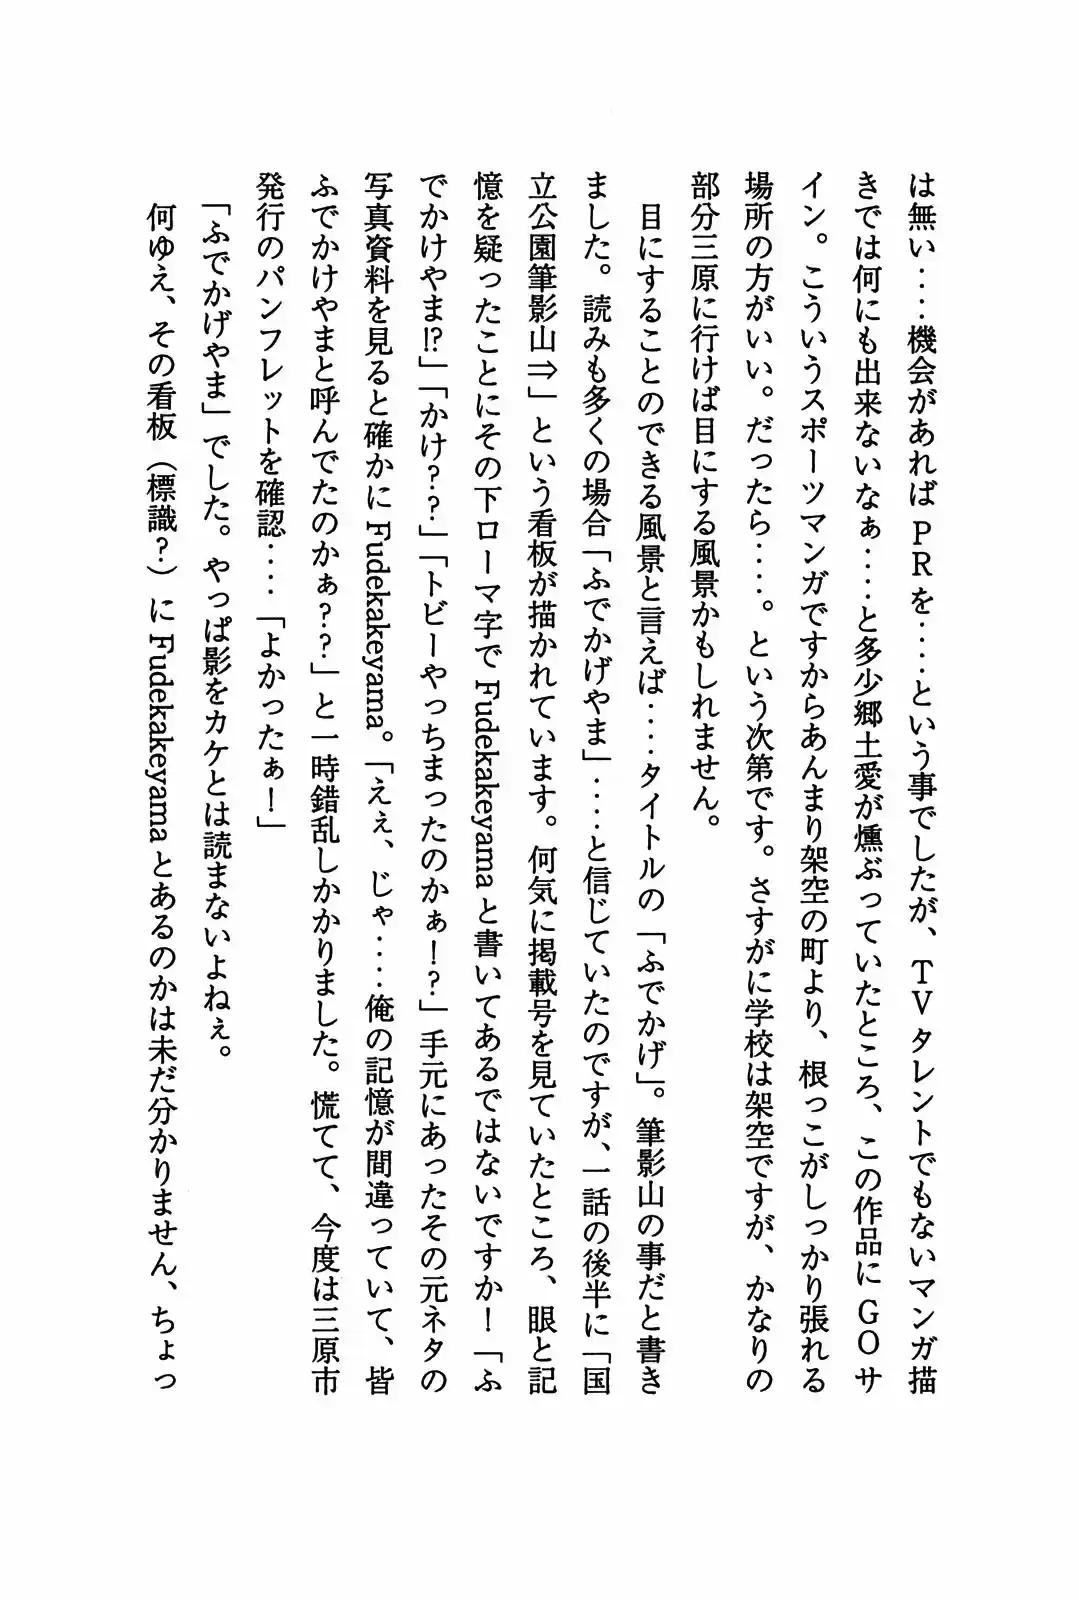 は無い‥‥機会があればＰＲを‥‥という事でしたが、ＴＶタレントでもないマンガ描
きでは何にも出来ないなぁ‥‥と多少郷土愛が燻ぶっていたところ、この作品にＧＯサ
イン。こういうスポーツマンガですからあんまり架空の町より、根っこがしっかり張れる
場所の方がいい。だったら‥‥。という次第です。さすがに学校は架空ですが、かなりの
部分三原に行けば目にする風景かもしれません。
目にすることのできる風景と言えば‥‥タイトルの「ふでかげ」。筆影山の事だと書き
ました。読みも多くの場合「ふでかげやま」‥‥と信じていたのですが、一話の後半に「国
立公園筆影山⇒」という看板が描かれています。何気に掲載号を見ていたところ、眼と記
憶を疑ったことにその下ローマ字で Fudekakeyama と書いてあるではないですか！「ふ
でかけやま!?」「かけ？？」「トビーやっちまったのかぁ！？」手元にあったその元ネタの
写真資料を見ると確かに Fudekakeyama。「えぇ、じゃ‥‥俺の記憶が間違っていて、皆
ふでかけやまと呼んでたのかぁ？？」と一時錯乱しかかりました。慌てて、今度は三原市
発行のパンフレットを確認‥‥「よかったぁ！」
「ふでかげやま」でした。やっぱ影をカケとは読まないよねぇ。
何ゆえ、その看板（標識？）に Fudekakeyama とあるのかは未だ分かりません、ちょっ